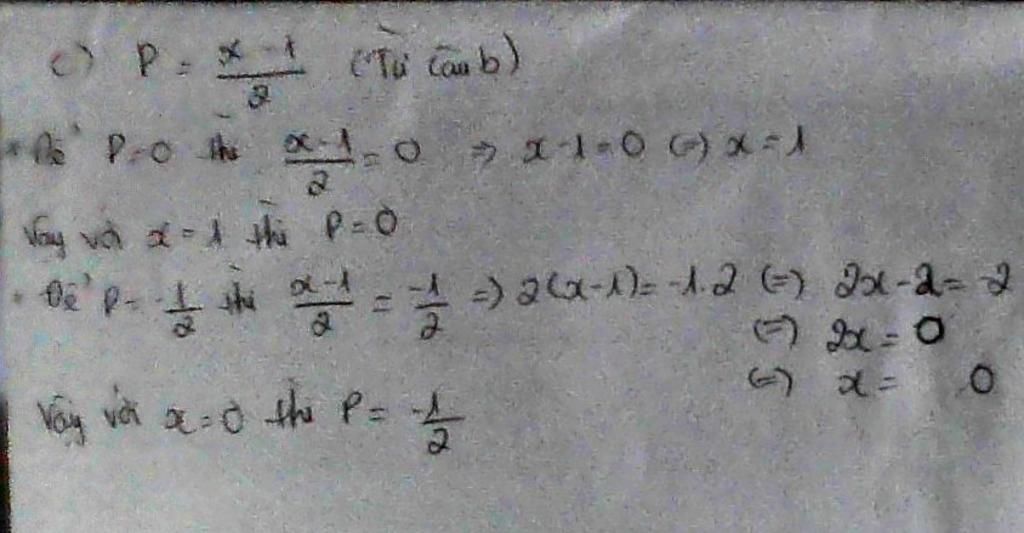 c) P = \frac{x-1}{2} (Từ câu b)
* Để P=0 thì \frac{x-1}{2} = 0 => x-1=0 (=) x=1
Vậy với x=1 thì P=0
* Để P=-\frac{1}{2} thì \frac{x-1}{2} = \frac{-1}{2} => 2(x-1)=-1.2 (=) 2x-2=-2
(=) 2x=0
(=) x= 0
Vậy với x=0 thì P= \frac{-1}{2}